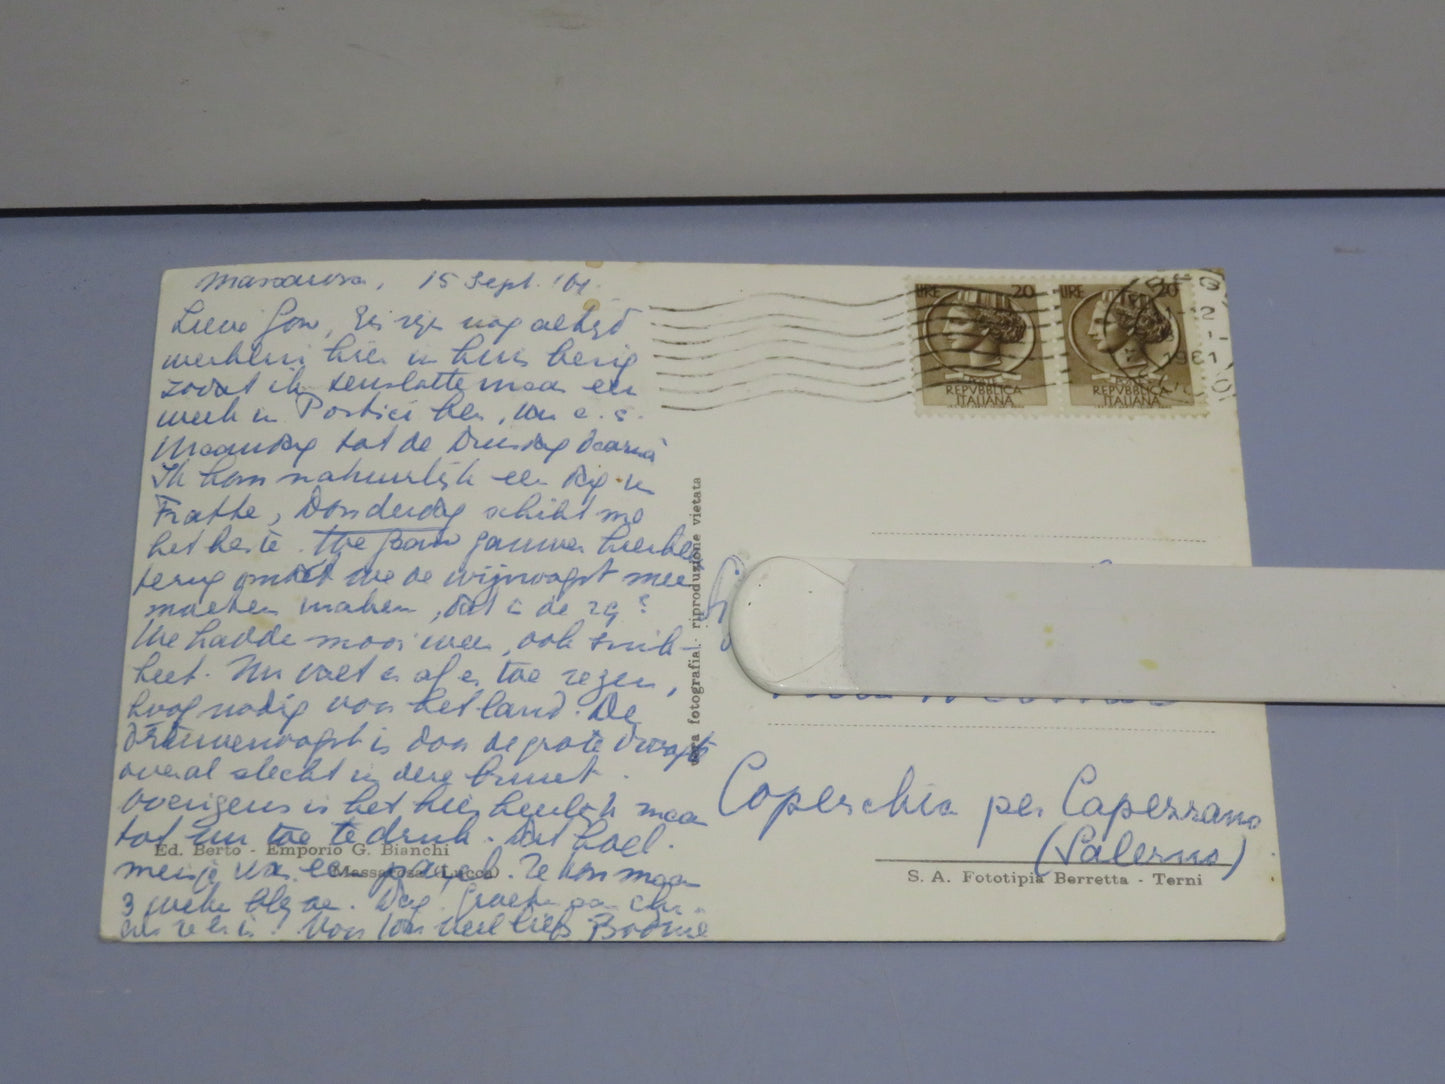 Massarosa, 15 Sept. '61.
Lieve Gon, Er zijn nog altijd
werklui hier in huis bezig
zodat ik tenslotte maar een
week in Portici ben, van a.s.
Maandag tot de Dinsdag daarna
Ik kom natuurlijk een dag in
Fratte, Donderdag schikt me
het beste. We gaan
terug omdat we de wijnoogst mee
moeten maken, dat is de 29?
We hadden mooi weer, ook snik-
heet. Nu valt er af en toe regen,
hoog nodig voor het land. De
Druivenoogst is door de grote droogte
overal slecht in deze buurt.
Overigens is het hier heerlijk maar
tot nu toe te druk.
meisje van een Ze kon maar
3 weken blijven. Dag. Groeten aan
als ze er is. Voor jou veel liefs
LIRE 20
REPVBBLICA
ITALIANA
LIRE 20
REPVBBLICA
ITALIANA
1961
vera fotografia - riproduzione vietata
Coperchia per Capezzano
(Salerno)
Ed. Berto - Emporio G. Bianchi
Massarosa (Lucca)
S. A. Fototipia Berretta - Terni